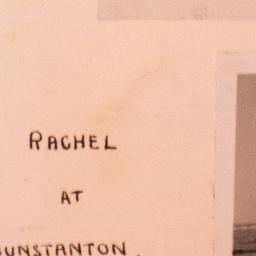 RACHEL
AT
HUNSTANTON.